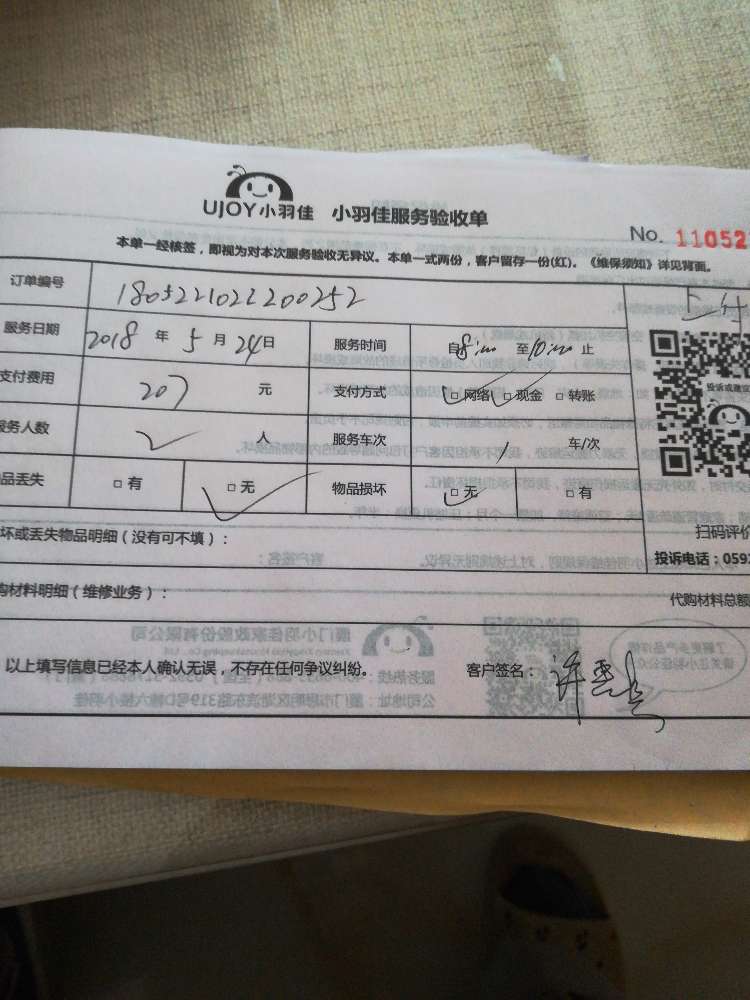 UJOY小羽佳 小羽佳服务验收单
No. 11052
本单一经核签，即视为对本次服务验收无异议。本单一式两份，客户留存一份(红)。《维保须知》详见背面。
订单编号 1805221022200252
服务日期 2018 年 5 月 24日 服务时间 自8:00 至10:00 止
支付费用 207 元 支付方式 □网络 □现金 □转账
服务人数 2 人 服务车次 1 车/次
品丢失 □有 □无 物品损坏 □无 □有
投诉或建议
坏或丢失物品明细（没有可不填）：
扫码评价
投诉电话：059
购材料明细（维修业务）：
代购材料总额
以上填写信息已经本人确认无误，不存在任何争议纠纷。 客户签名：